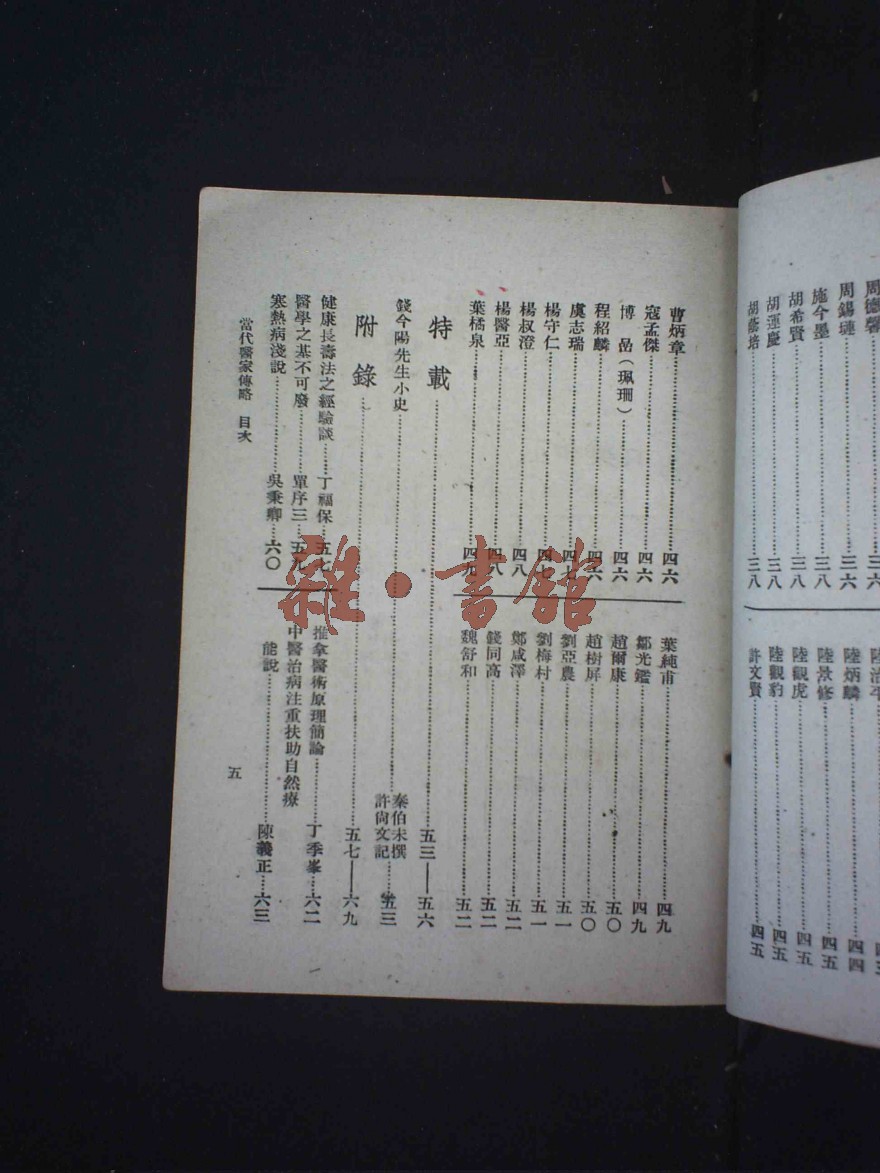 周德馨……三六
周錫璉……三六
施今墨……三八
胡希賢……三八
胡運慶……三八
胡藝培……三八
陸炳麟……四四
陸景修……四五
陸觀虎……四五
陸觀豹……四五
許文賢……四五
曹炳章……四六
寇孟傑……四六
博嵒（珮珊）……四六
程紹麟……四六
虞志瑞……四七
楊守仁……四七
楊叔澄……四八
楊醫亞……四八
葉橘泉……四九
葉純甫……四九
鄒光鑑……四九
趙爾康……五〇
趙樹屏……五〇
劉亞農……五一
劉梅村……五一
鄭咸澤……五二
錢同高……五二
魏舒和……五二
特載……五三——五六
錢今陽先生小史……秦伯未撰 許尚文記……五三
附錄……五七——六九
健康長壽法之經驗談……丁福保……五七
醫學之基不可廢……單序三……五九
寒熱病淺說……吳秉卿……六〇
推拿醫術原理簡論……丁季峯……六二
中醫治病注重扶助自然療
能說……陳義正……六三
當代醫家傳略 目次
五
雜·書館